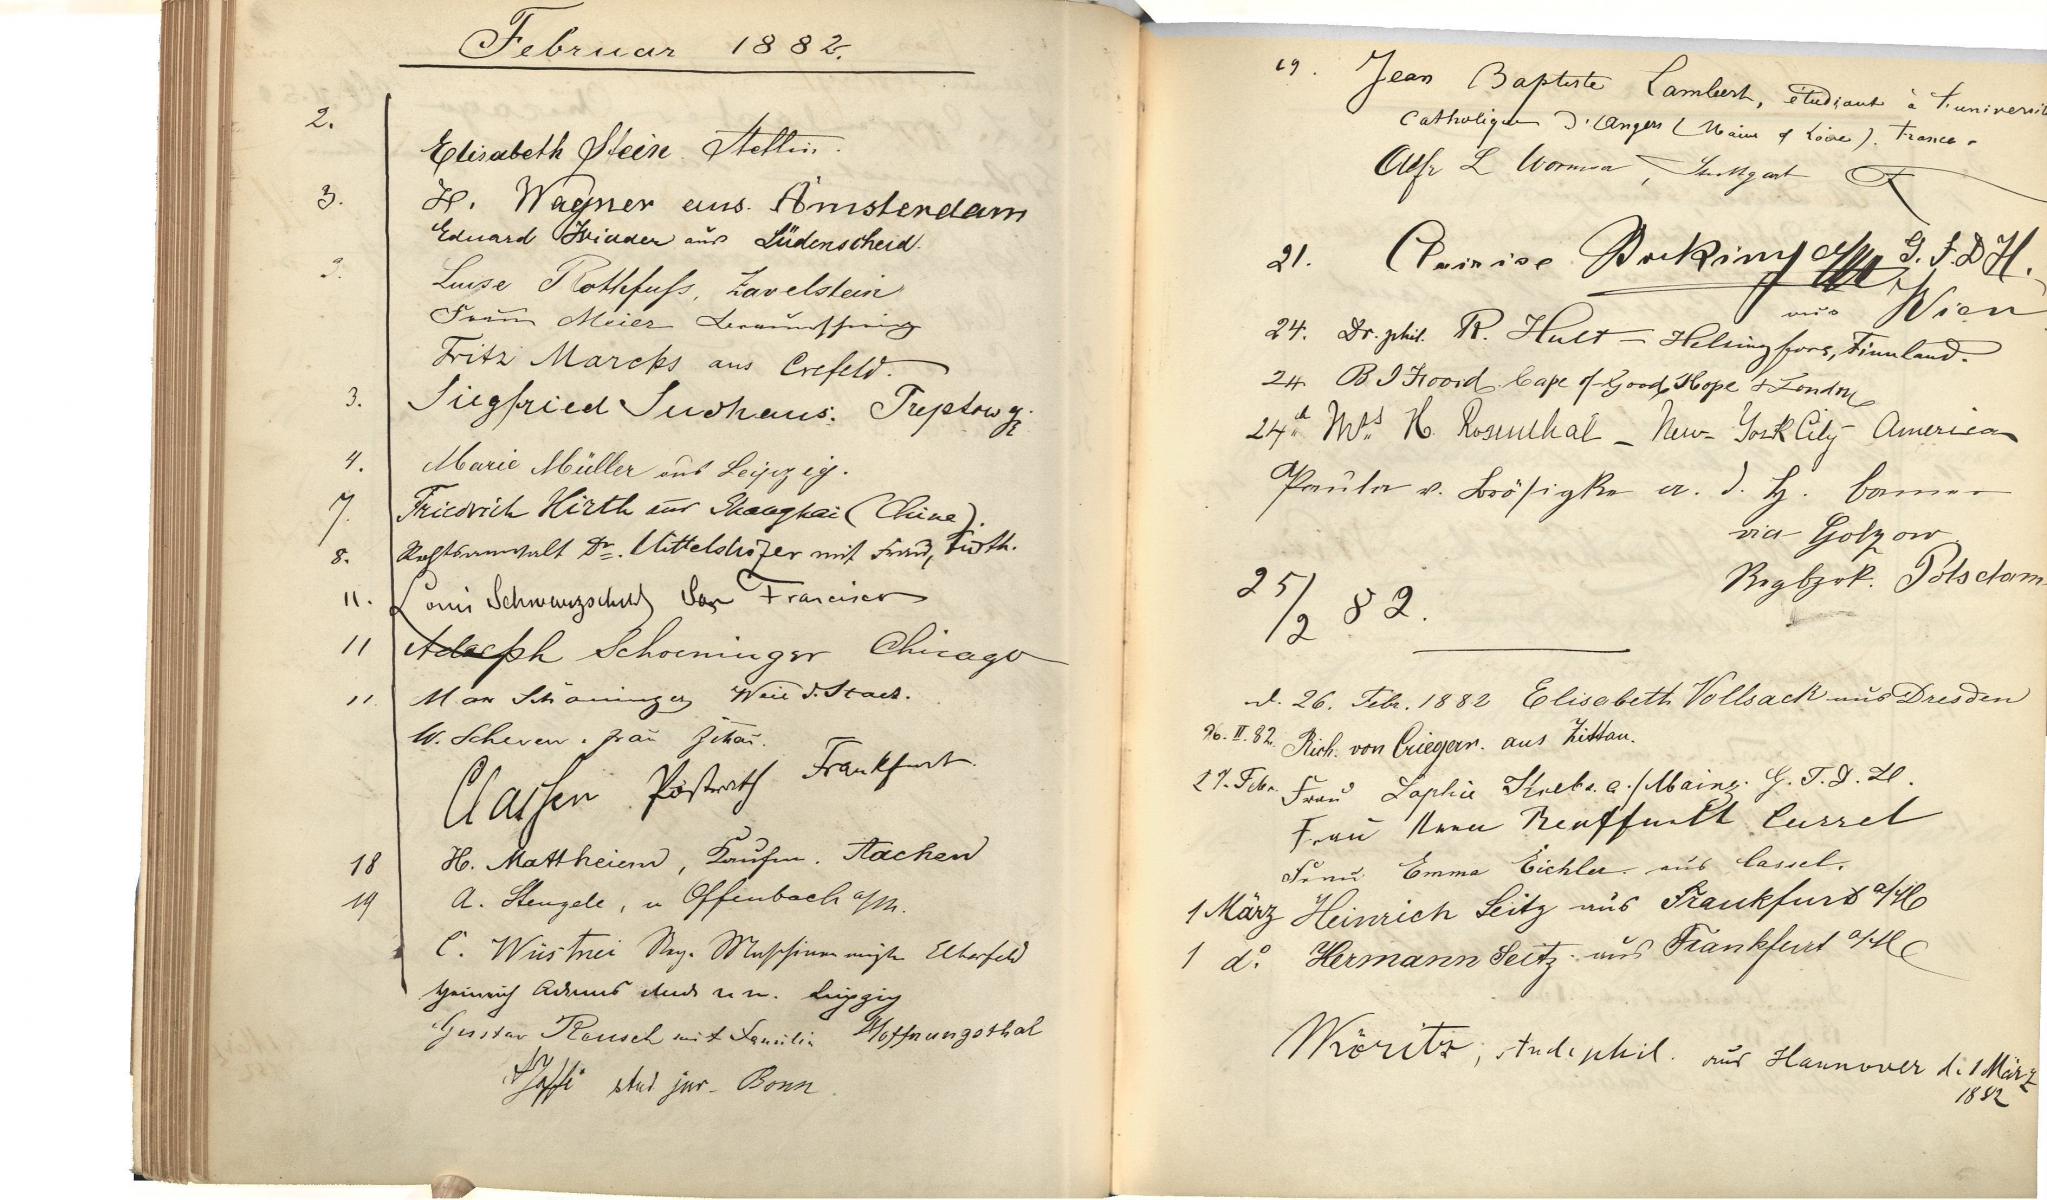 Februar 1882.
2.
Elisabeth Stein. Stettin.
3. H. Wagner aus Amsterdam
Eduard aus Lüdenscheid.
3. Luise Rothfuß, Zavelstein
Frau Meier Braunschweig
Fritz Marcks aus Crefeld.
3. Siegfried Sudhaus. Treptow
4. Marie Müller aus Leipzig.
7. Friedrich Hirth aus Shanghai (China).
8. Rechtsanwalt Dr. Mittelshöfer mit Frau, Fürth.
11. Louis San Francisco
11 Adolph Schoeninger Chicago
11 Max Schöninger Weil d. Stadt.
W. Scheven. Frau
Classen Postrath Frankfurt.
18 H. Mattheiem, Kaufm. Aachen
19 A. Stengele, v Offenbach a/M.
C. Wüstnei Elberfeld
Heinrich Leipzig
Gustav Rausch mit Familie Hoffnungsthal
stud jur. Bonn
19. Jean Baptiste Lambert, étudiant à l'universit
catholique d'Angers (Maine & Loire). France.
Alfr L Wormser, Stuttgart
21. G. F. D H.
aus Wien
24. Dr. phil. R. Hult – Helsingfors, Finnland.
24 Cape of Good Hope & London
24th Mrs H. Rosenthal – New York City America
Paula v. Brösigke a. d. H. Camer
via Golzow
Rgbzrk. Potsdam
25/2 82.
d. 26. Febr. 1882 Elisabeth Vollsack aus Dresden
26. II. 82. Rich. von Criegern. aus Zittau.
27. Febr. Frau Sophie Krebs. a./Mainz. G. F. D. H.
Frau Cassel
Frau Emma Eichler. aus Cassel.
1 März Heinrich Seitz aus Frankfurt a/M
1 do. Hermann Seitz. aus Frankfurt a/M
Möritz, stud. phil. aus Hannover d. 1 März
1882